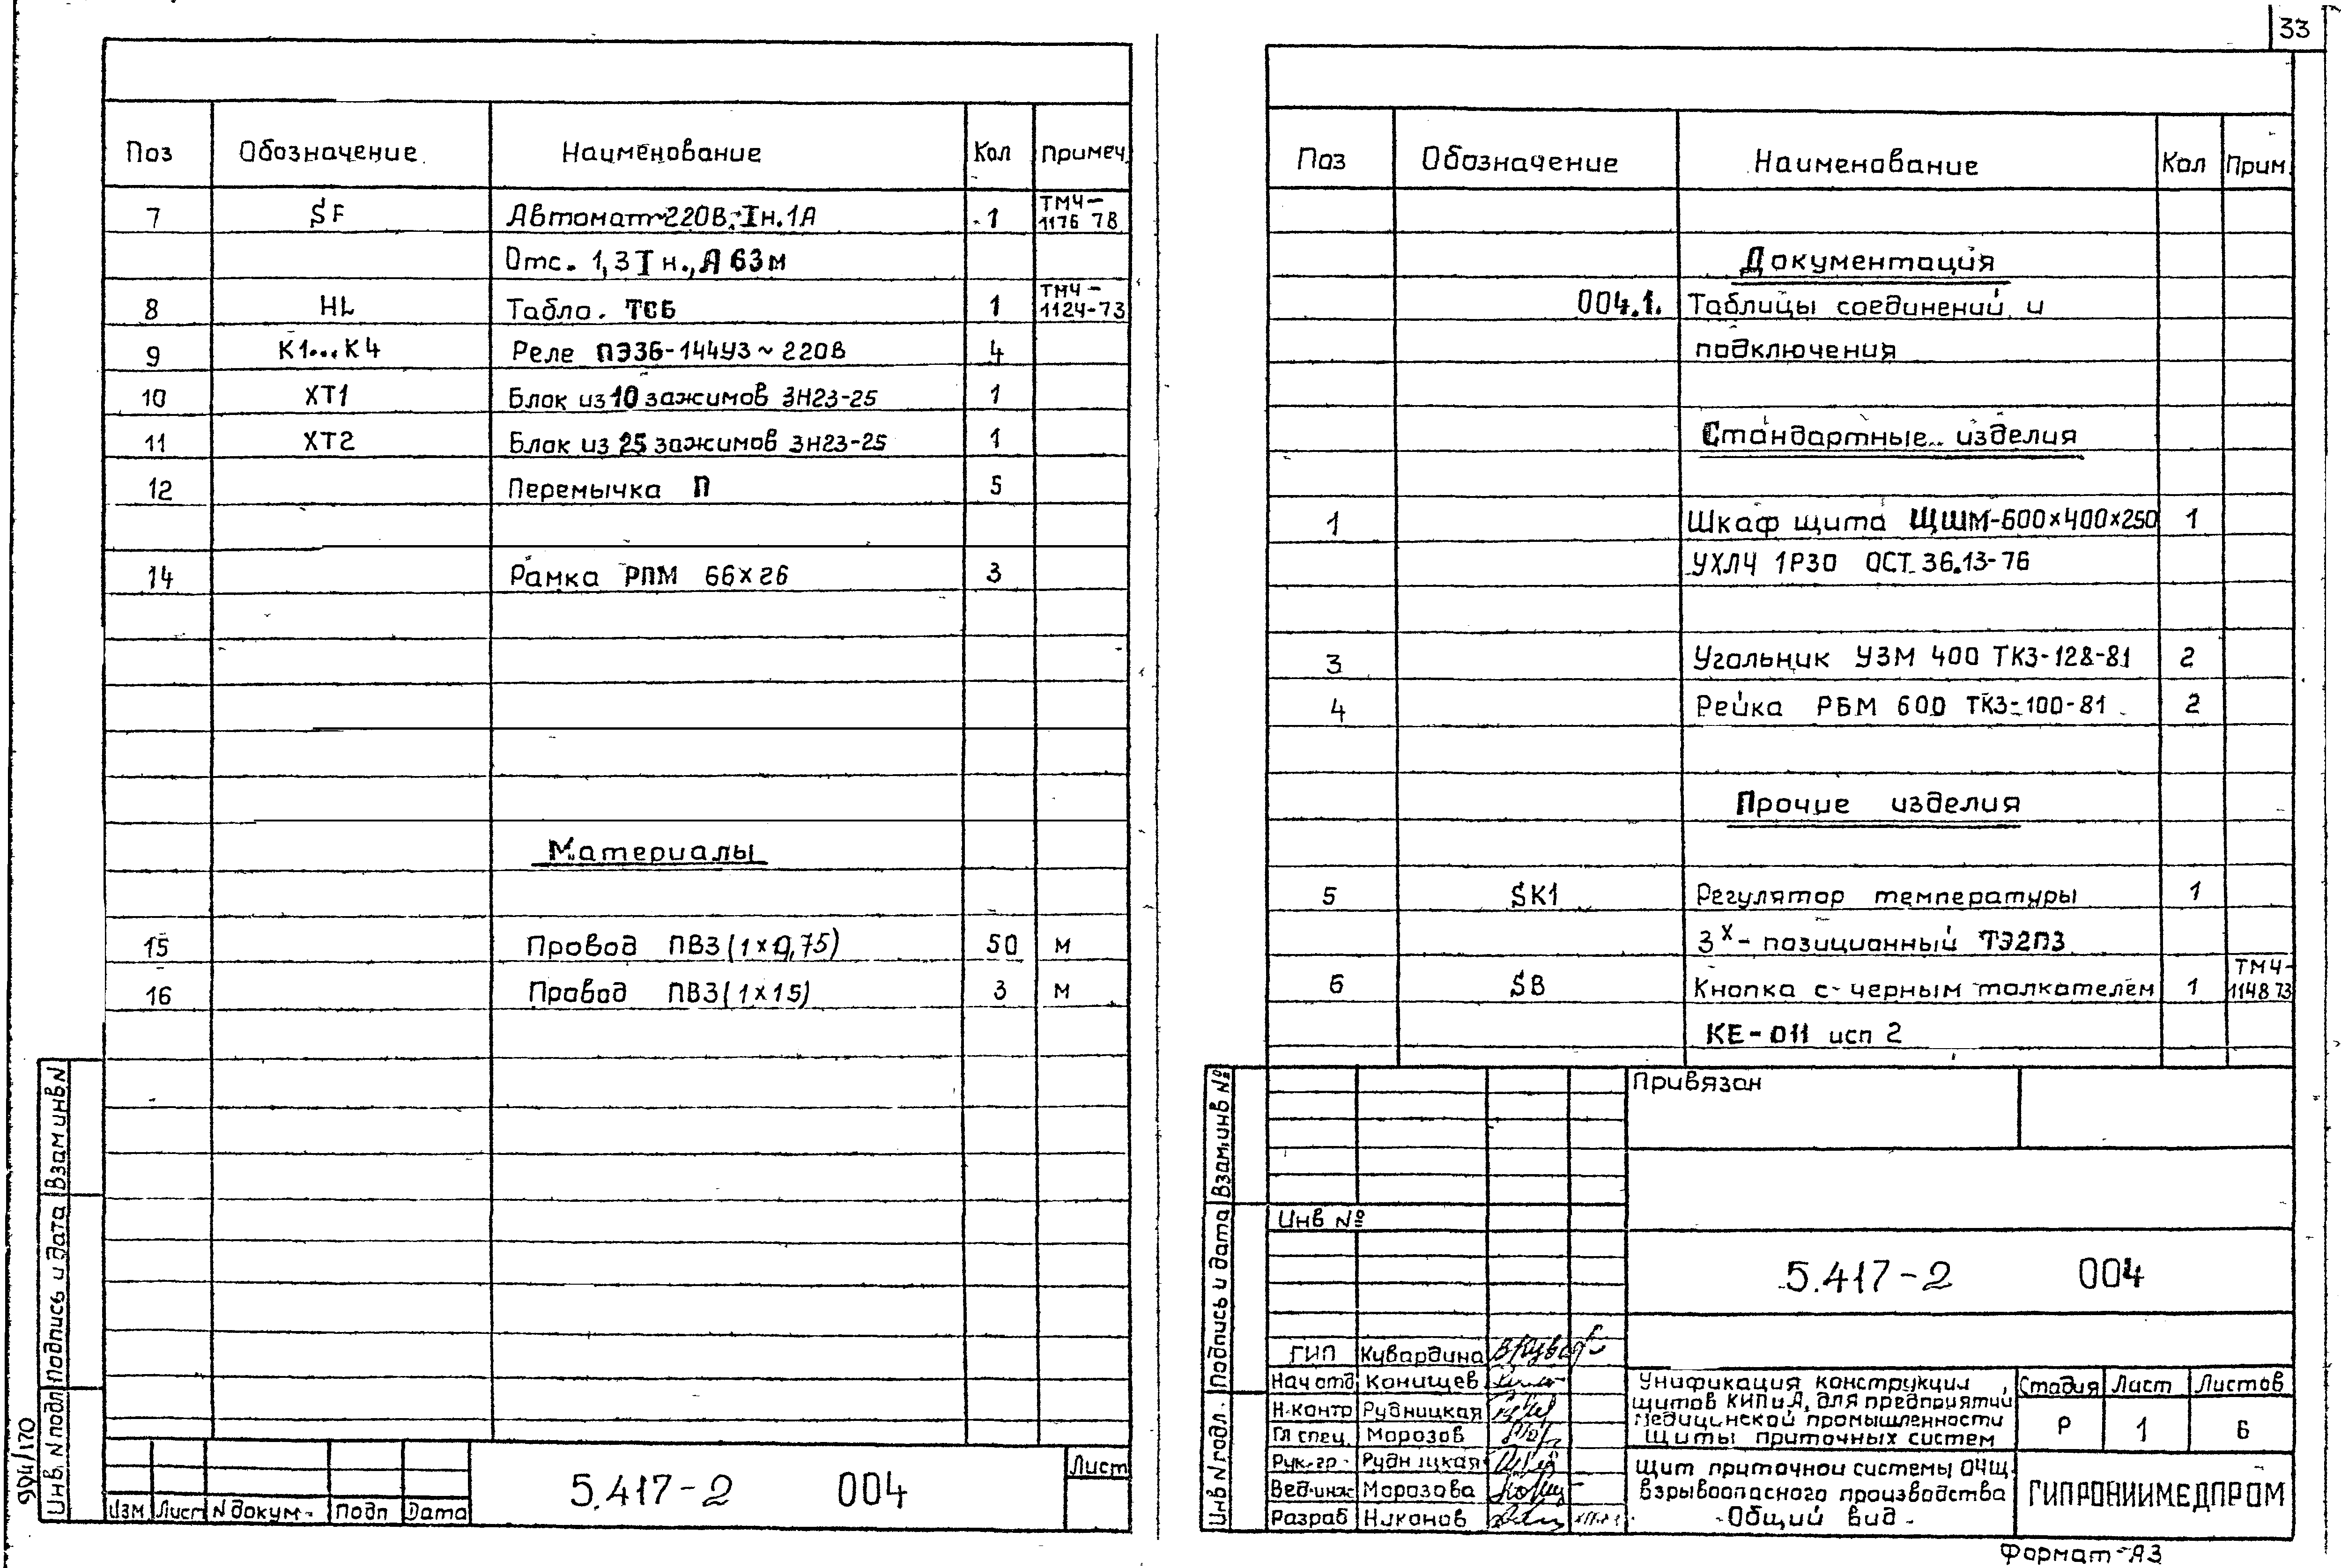 33
Поз Обозначение Наименование Кол Примеч.
7 SF Автомат ~220В, Iн.1А 1 ТМ4-1176 78
Отс. 1,3 Iн., А 63м
8 HL Табло. ТСБ 1 ТМ4-1124-73
9 К1...К4 Реле ПЭ36-144У3 ~ 220В 4
10 ХТ1 Блок из 10 зажимов ЗН23-25 1
11 ХТ2 Блок из 25 зажимов ЗН23-25 1
12 Перемычка П 5
14 Рамка РПМ 66х26 3
Материалы
15 Провод ПВ3 (1х0,75) 50 м
16 Провод ПВ3 (1х15) 3 м
Инв. N подл Подпись и дата Взам инв N
Изм Лист N докум. Подп Дата
5.417-2 004
Лист
Поз Обозначение Наименование Кол Прим.
Документация
004.1. Таблицы соединений и
подключения
Стандартные изделия
1 Шкаф щита ЩШМ-600х400х250 1
УХЛ4 1Р30 ОСТ 36.13-76
3 Угольник УЗМ 400 ТК3-128-81 2
4 Рейка РБМ 600 ТК3-100-81 2
Прочие изделия
5 SK1 Регулятор температуры 1
3х-позиционный ТЭ2П3
6 SB Кнопка с черным толкателем 1 ТМ4-1148 73
КЕ-011 исп 2
Инв N подл. Подпись и дата Взам. инв №
Привязан
Инв №
5.417-2 004
ГИП Кувардина
Нач отд Конищев
Н.контр Рудницкая
Гл спец. Морозов
Рук. гр. Рудницкая
Вед.инж Морозова
Разраб Никонов
Унификация конструкции
щитов КИПиА, для предприятий
медицинской промышленности
Щиты приточных систем
Стадия Лист Листов
Р 1 6
Щит приточной системы 04Щ
взрывоопасного производства
Общий вид.
ГИПРОНИИМЕДПРОМ
Формат-А3